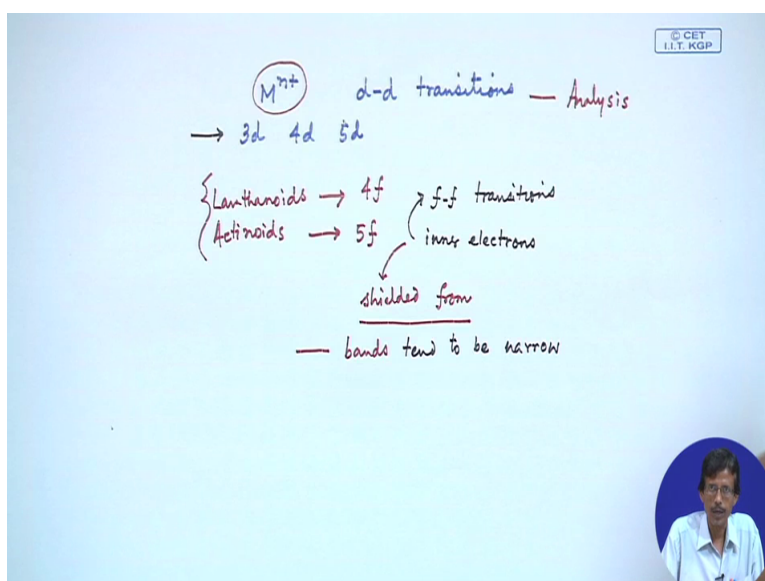 © CET
I.I.T. KGP
Mⁿ⁺ d-d transitions — Analysis
→ 3d 4d 5d
Lanthanoids → 4f f-f transitions
Actinoids → 5f inner electrons
shielded from
— bands tend to be narrow